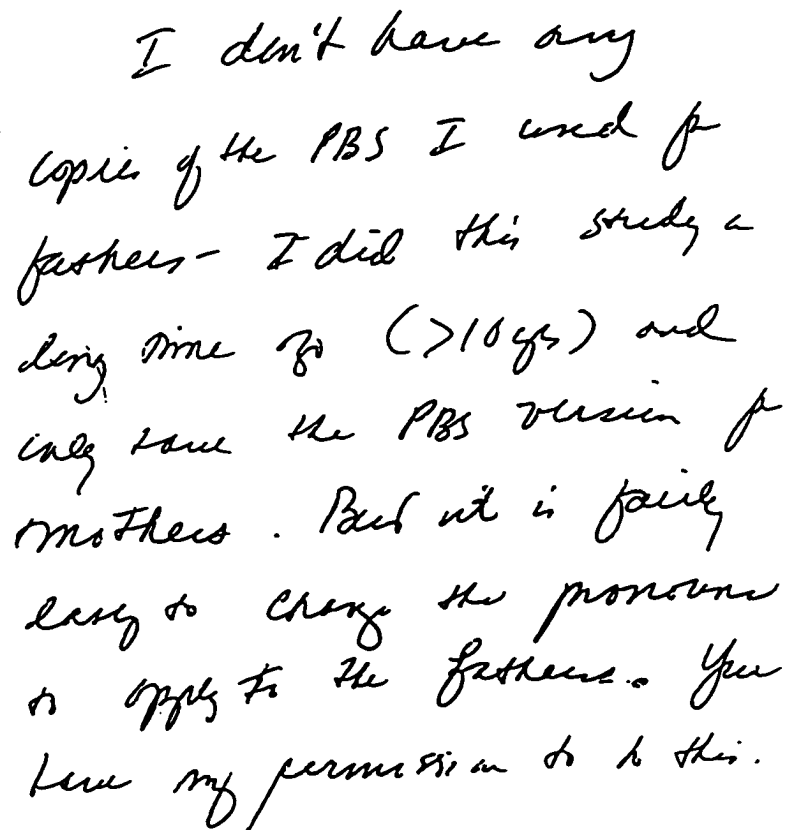 I don't have any
copies of the PBS I used for
fathers - I did this study a
long time ago (>10 yrs) and
only have the PBS version for
mothers. But it is fairly
easy to change the pronouns
to apply to the fathers. You
have my permission to do this.